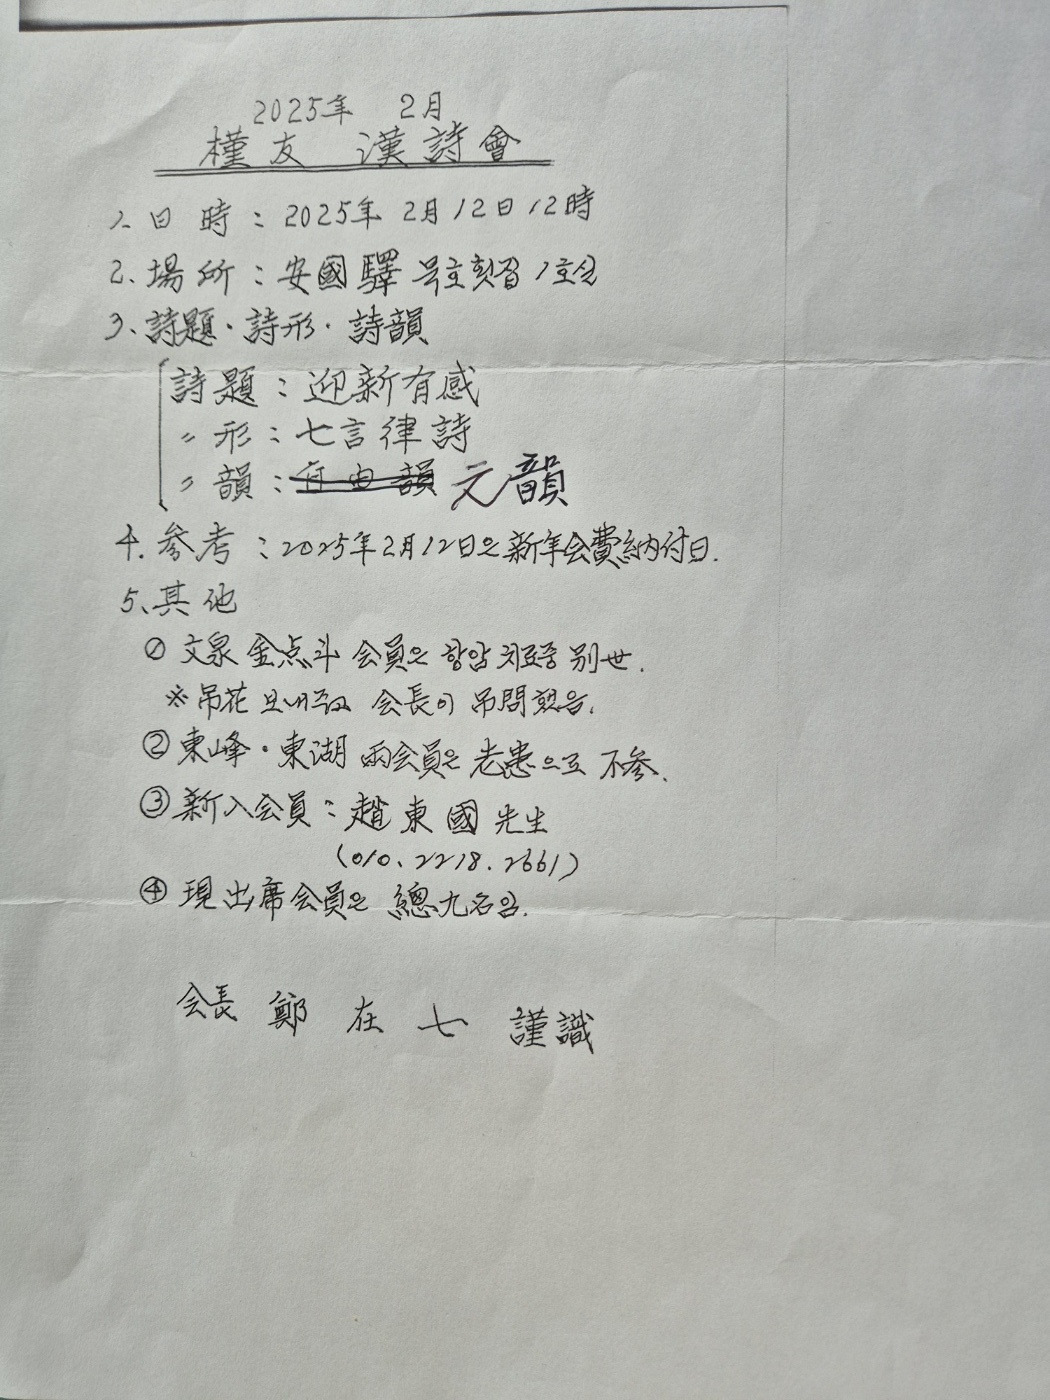 2025年 2月
槿友 漢詩會
1. 日時 : 2025年 2月 12日 12時
2. 場所 : 安國驛 묵호횟집 1호실
3. 詩題·詩形·詩韻
詩題 : 迎新有感
〃 形 : 七言律詩
〃 韻 : 自由韻 元韻
4. 参考 : 2025年2月12日은 新年会費納付日.
5. 其他
① 文泉 金点斗 会員은 항암치료중 別世.
※ 吊花 보내주고 会長이 吊問했음.
② 東峰·東湖 兩会員은 老患으로 不参.
③ 新入会員 : 趙東國 先生
(010. 2218. 2661)
④ 現出席会員은 總九名임.
会長 鄭在七 謹識